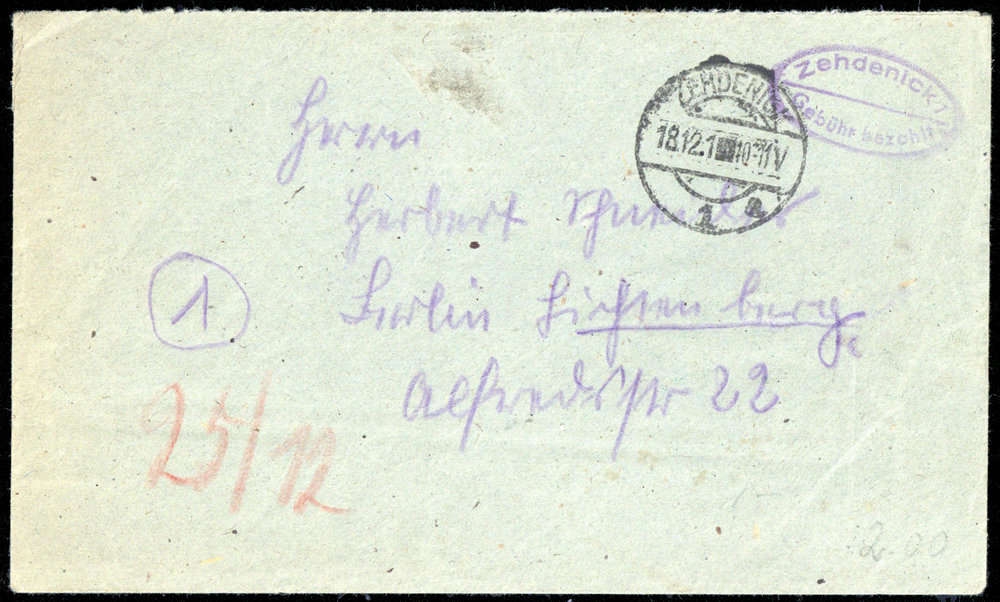 Zehdenick
Gebühr bezahlt
ZEHDENICK
18.12.1 10-11V
1 a
Herrn
Herbert
1
Berlin Lichtenberg
Alfredstr 22
25/12
2.00